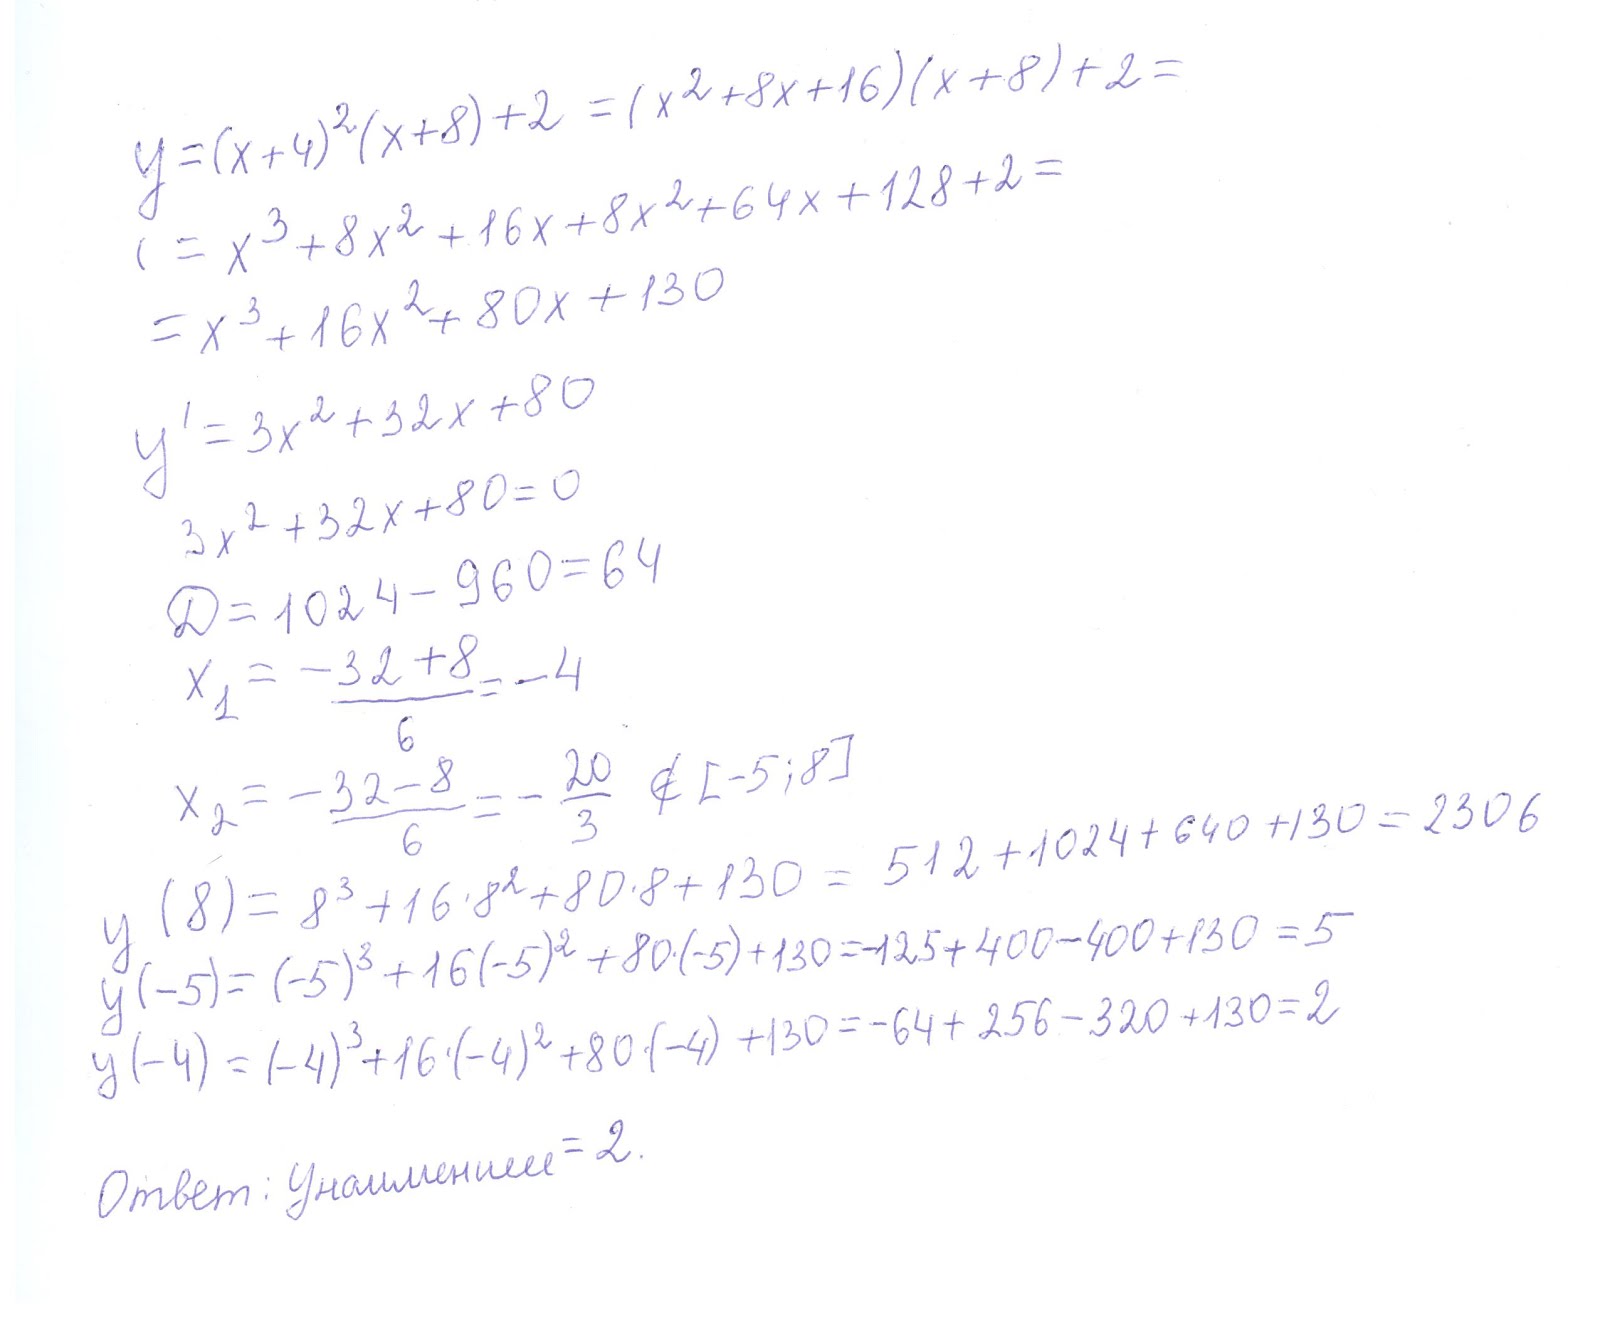 y=(x+4)²(x+8)+2=(x²+8x+16)(x+8)+2=
(=x³+8x²+16x+8x²+64x+128+2=
=x³+16x²+80x+130
y'=3x²+32x+80
3x²+32x+80=0
D=1024-960=64
x₁=(-32+8)/6=-4
x₂=(-32-8)/6=-20/3∉[-5;8]
y(8)=8³+16·8²+80·8+130=512+1024+640+130=2306
y(-5)=(-5)³+16(-5)²+80·(-5)+130=-125+400-400+130=5
y(-4)=(-4)³+16·(-4)²+80·(-4)+130=-64+256-320+130=2
Ответ: Унаименьшее=2.